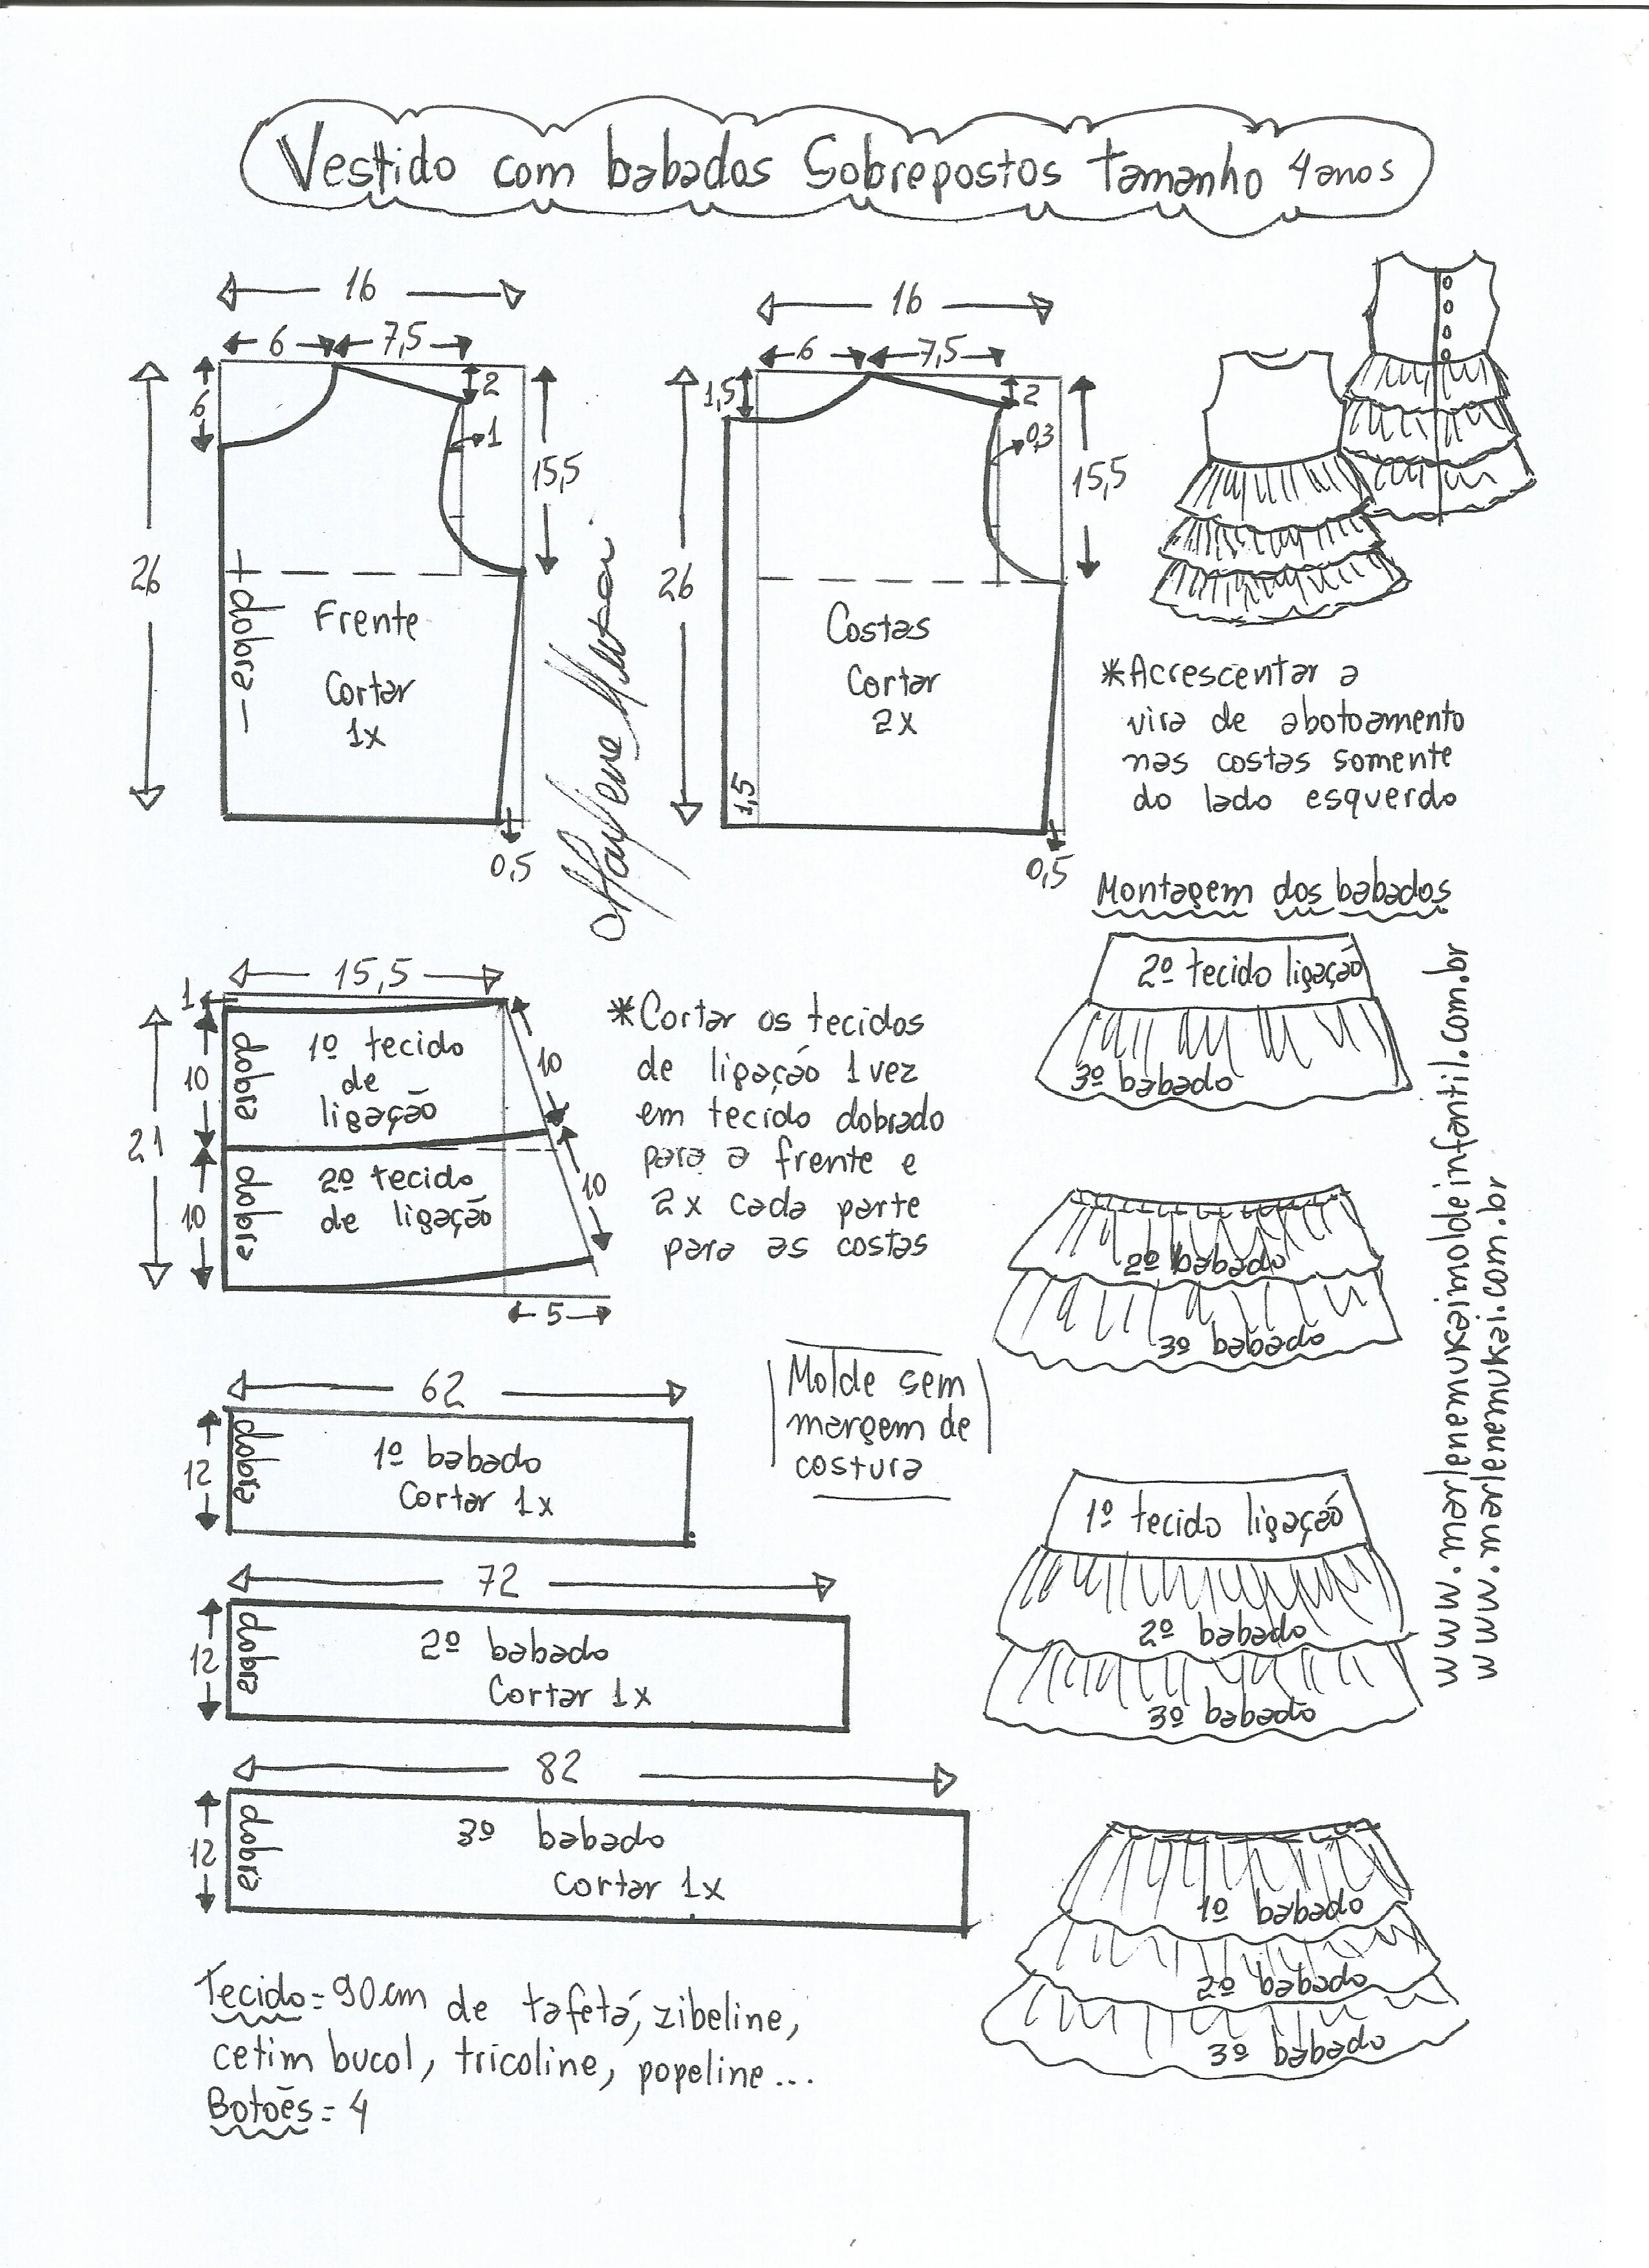 Vestido com babados Sobrepostos tamanho 4 anos
16
6
7,5
6
2
1
15,5
26
dobra
Frente
Cortar
1x
0,5
Marlene Mukai
16
6
7,5
1,5
2
0,3
15,5
26
Costas
Cortar
2x
1,5
0,5
*Acrescentar a
vira de abotoamento
nas costas somente
do lado esquerdo
15,5
1
10
10
21
dobra
1º tecido
de
ligação
10
dobra
2º tecido
de ligação
10
5
*Cortar os tecidos
de ligação 1 vez
em tecido dobrado
para a frente e
2x cada parte
para as costas
62
12
dobra
1º babado
Cortar 1x
Molde sem
margem de
costura
72
12
dobra
2º babado
Cortar 1x
82
12
dobra
3º babado
cortar 1x
Tecido=90cm de tafetá, zibeline,
cetim bucol, tricoline, popeline...
Botões=4
Montagem dos babados
2º tecido ligação
3º babado
2º babado
3º babado
1º tecido ligação
2º babado
3º babado
1º babado
2º babado
3º babado
www.marlenemukaimoldeinfantil.com.br
www.marlenemukai.com.br